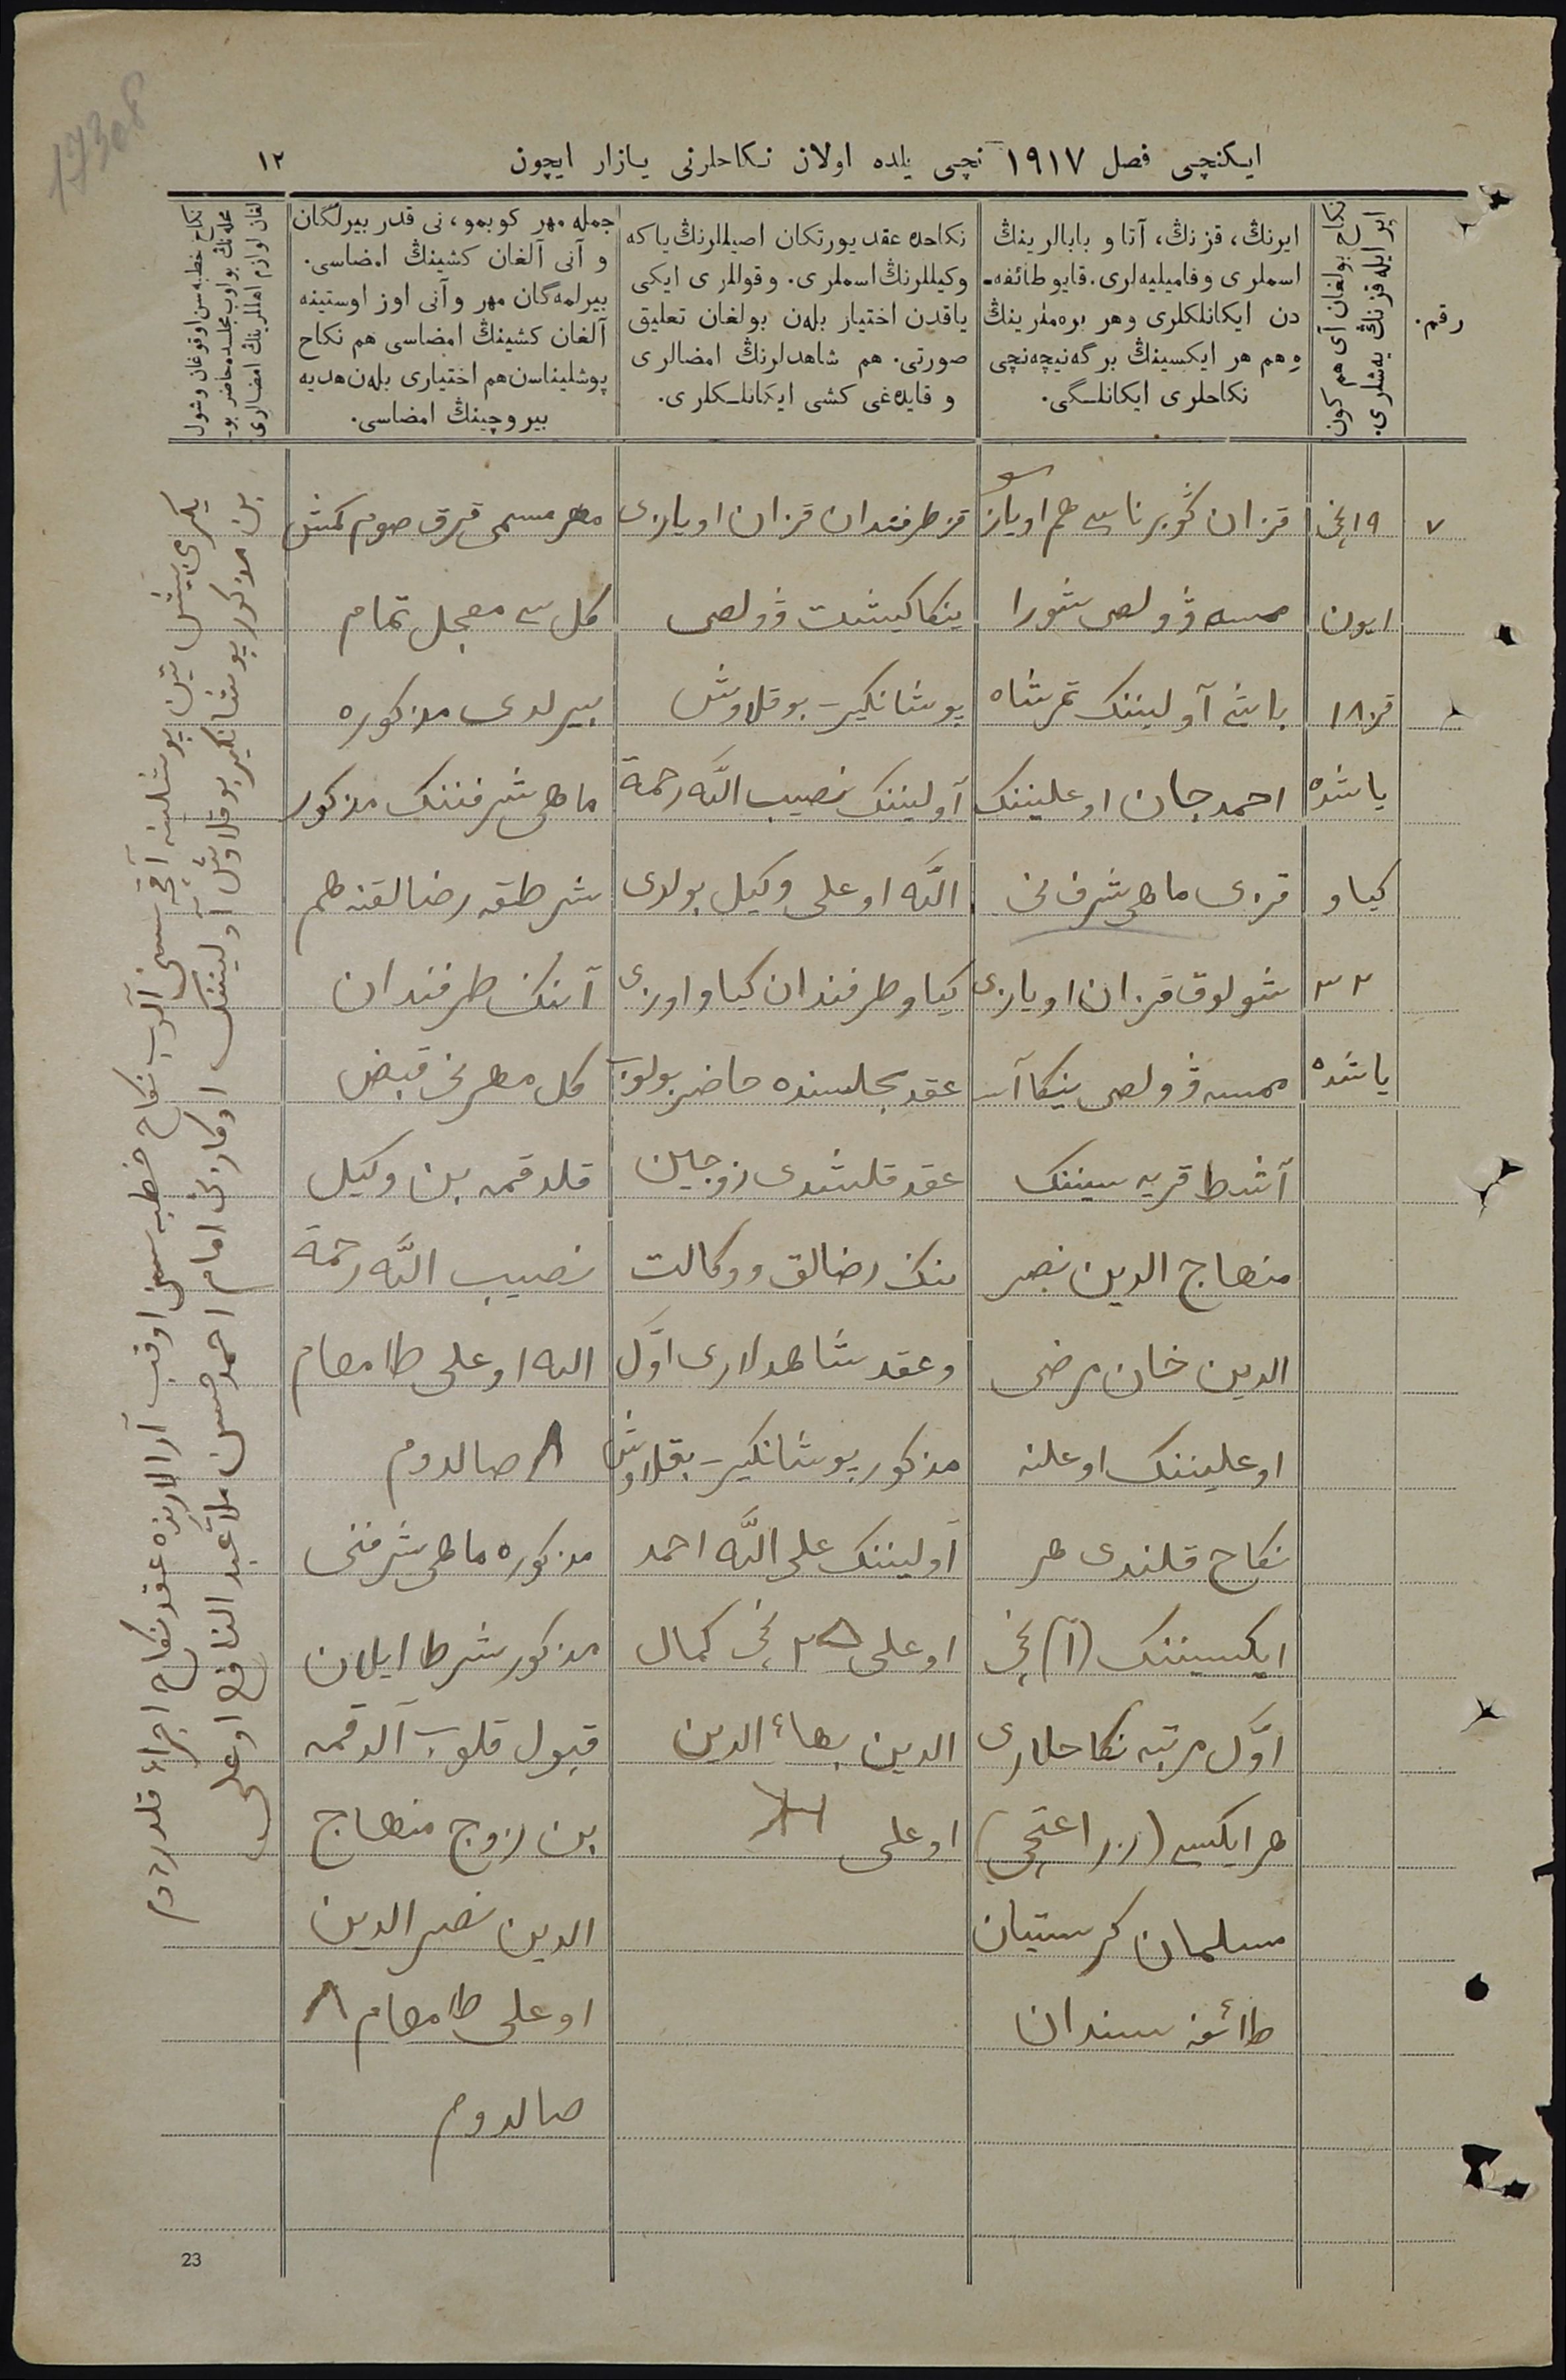 17308
ایکنچی فصل ١٩١٧ نچی یلده اولان نکاحلرنی یازار ایچون
١٢
رقم.
نکاح بولغان آی هم کون
ایر ایله قزنڭ یەشلری.
ایرنڭ، قزنڭ، آتا و بابالرینڭ
اسملری وفامیلیەلری. قایو طائفه-
دن ایکانلکلری وهر برەملرینڭ
وهم هر ایکسینڭ برگەنیچەنچی
نکاحلری ایکانلـگی.
نکاحده عقد یورتکان اصیللرنڭ یاکه
وکیللرنڭ اسملری. وقوللری ایکی
یاقدن اختیار بلەن بولغان تعلیق
صورتی. هم شاهدلرنڭ امضالری
و قایدەغی کشی ایکانلـکلری.
جمله مهر کوبمو، نی قدر بیرلگان
و آنی آلغان کشینڭ امضاسی.
بیرلمەگان مهر وآنی اوز اوستینه
آلغان کشینڭ امضاسی هم نکاح
پوشلیناسن هم اختیاری بلەن هدیه
بیروچینڭ امضاسی.
نکاح خطبەسن اوقوغان وشول
محلەنڭ بولوب مجلسده حاضر بو-
لغان لوازم اهللرینڭ امضالری
٧
١٩ نچی
ایون
قز ١٨
یاشده
کیاو
٣٢
یاشده
قزان گوبرناسی هم اویاز
ممسه ڤولصی شورا
باشی آولیننک تمرشاه
احمدجان اوعلیننک
قزی ماهی شرف نی
شولوق قزان اویازی
ممسه ڤولصی ینکا آ
آشط قریه سیننک
منهاج الدین نصیر
الدین خان مرضی
اوعلیننک اوعلنه
نکاح قلندی هر
ایکسیننک (١) نچی
اوّل مرتبه نکاحلاری
هر ایکسی (زراعتچی)
مسلمان کرستیان
طائفه سندان
قز طرفندان قزان اویازی
ینکا کیشت ڤولصی
پوشانکیر بوقلاوش
آولیننک نصیب اللّه رحمة
اللّه اوعلی وکیل بولدی
کیاو طرفندان کیاو اوزی
عقد مجلسنده حاضر بولوب
عقد قلشدی زوجین
ننک رضالق ووکالت
وعقد شاهدلاری اوّل
مذکور پوشانکیر بقلاوش
آولیننک علی اللّه احمد
اوعلی ٢ نچی کمال
الدین بهاء الدین
اوعلی
مهر مسمی قرق صوم کمش
کل سی معجل تمام
بیرلدی مذکوره
ماهی شرفننک مذکور
شرطقه رضالقنه هم
آننک طرفندان
کل مهرنی قبض
قلدقمه بن وکیل
نصیب اللّه رحمة
الله اوعلی طامعام
٨ صالدوم
مذکوره ماهی شرفنی
مذکور شرط ایلان
قبول قلوب آلدقمه
بن زوج منهاج
الدین نصیر الدین
اوعلی طامعام ٨
صالدوم
بن مذکور پوشانکیر بوقلاوش آولیننک اوکازنی امام احمد حسن ملا عبد النافع اوعلی
یکرمی بیش تین پوشلینه آقچه سنی آلوب نکاح خطبه سنی اوقب آرالارنده عقد نکاح اجراء قلدردم
23